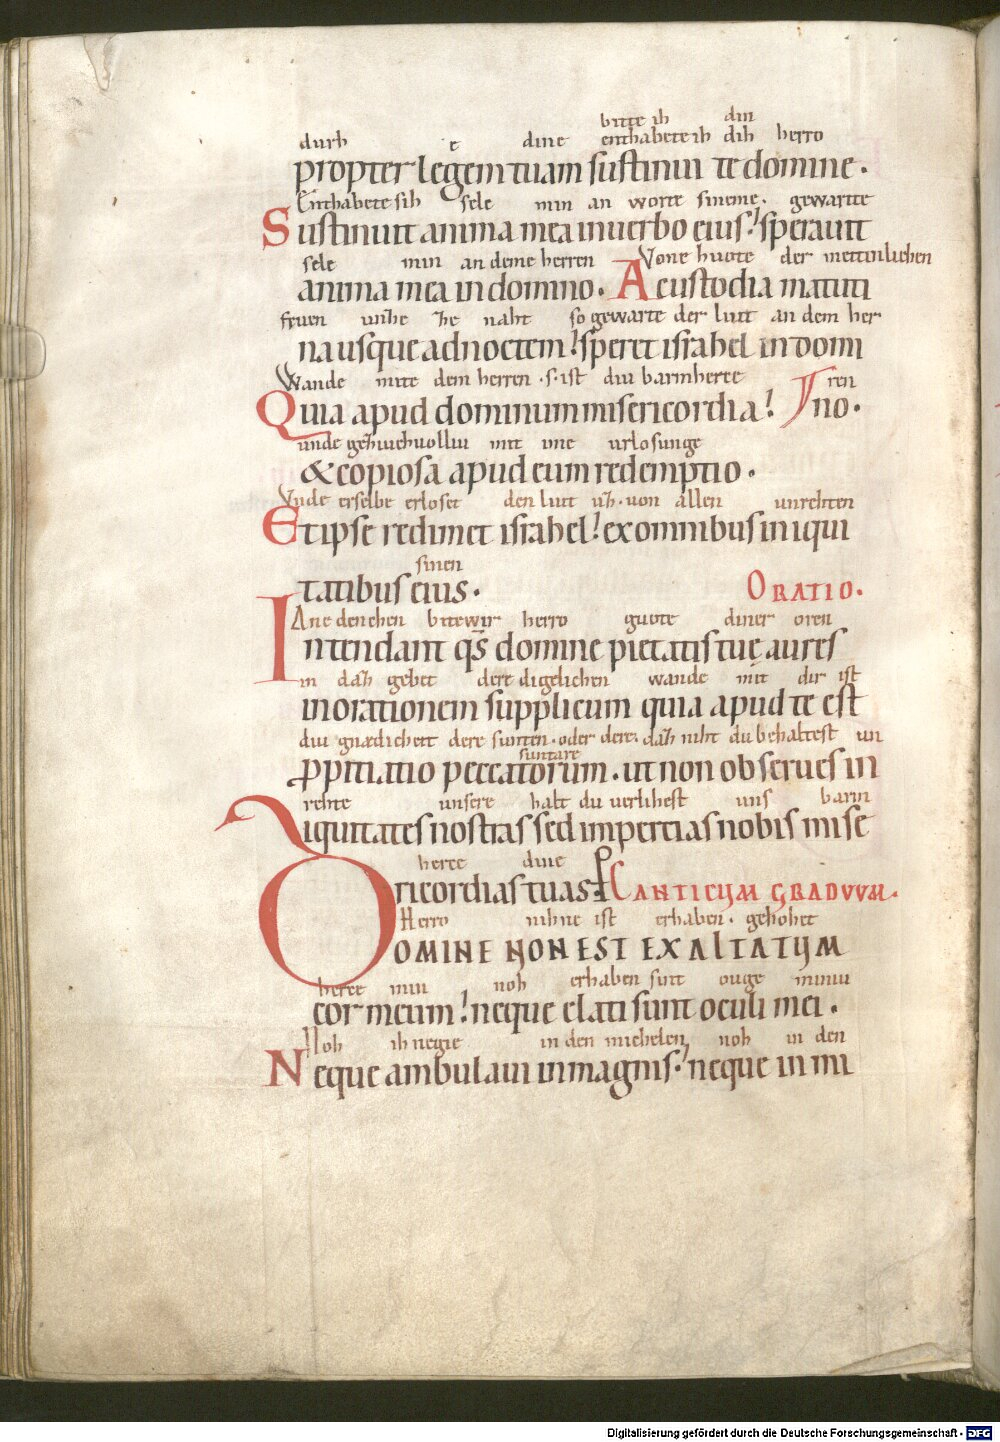 bitte ih din
durh e dine enthabete ih dih herro
propter legem tuam sustinui te domine.
Enthabete sih sele min an worte sineme. gewartte
Sustinuit anima mea in uerbo eius! sperauit
sele min an deme herren Vone huote der mettinlichen
anima mea in domino. A custodia matuti
so gewarte der liut an dem her
na usque ad noctem! speret israhel in domi
Wande mite dem herren .s. ist diu barmherce ren
Quia apud dominum misericordia! no.
unde mit ime urlosunge
& copiosa apud eum redemptio.
Vnde erselbe erloset den liut uz. von allen unrehten
Et ipse redimet israhel! ex omnibus iniqui
sinen
tatibus eius. ORATIO.
Ane denchen bitewir herro guote diner oren
Intendant qs domine pietatis tuę aures
in daz gebet dere digelichen wande mit dir ist
in orationem supplicum quia apud te est
diu gnædicheit dere sunten. oder dere. daz niht du behaltest un
suntare
ppitiatio peccatorum. ut non obserues in
rehte unsere halt du verlihest uns barm
iquitates nostras sed impercias nobis mise
herce dine
ricordias tuas. CANTICUM GRADUUM.
Herro nihne ist erhaben. gehohet
DOMINE NON EST EXALTATUM
herce min noh erhaben sint ouge miniu
cor meum! neque elati sunt oculi mei.
Noh ih negie in den michelen noh in den
Neque ambulaui in magnis! neque in mi
Digitalisierung gefördert durch die Deutsche Forschungsgemeinschaft - DFG